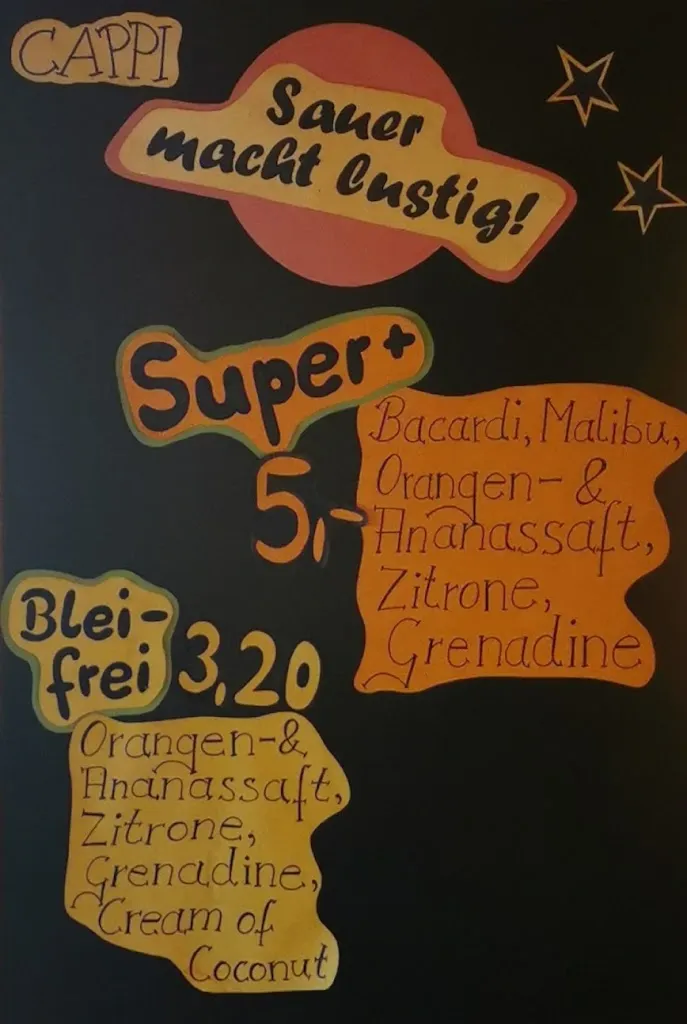 CAPPI
Sauer
macht lustig!
Super+
5,-
Bacardi, Malibu,
Orangen- &
Ananassaft,
Zitrone,
Grenadine
Blei-
frei
3,20
Orangen-&
Ananassaft,
Zitrone,
Grenadine,
Cream of
Coconut